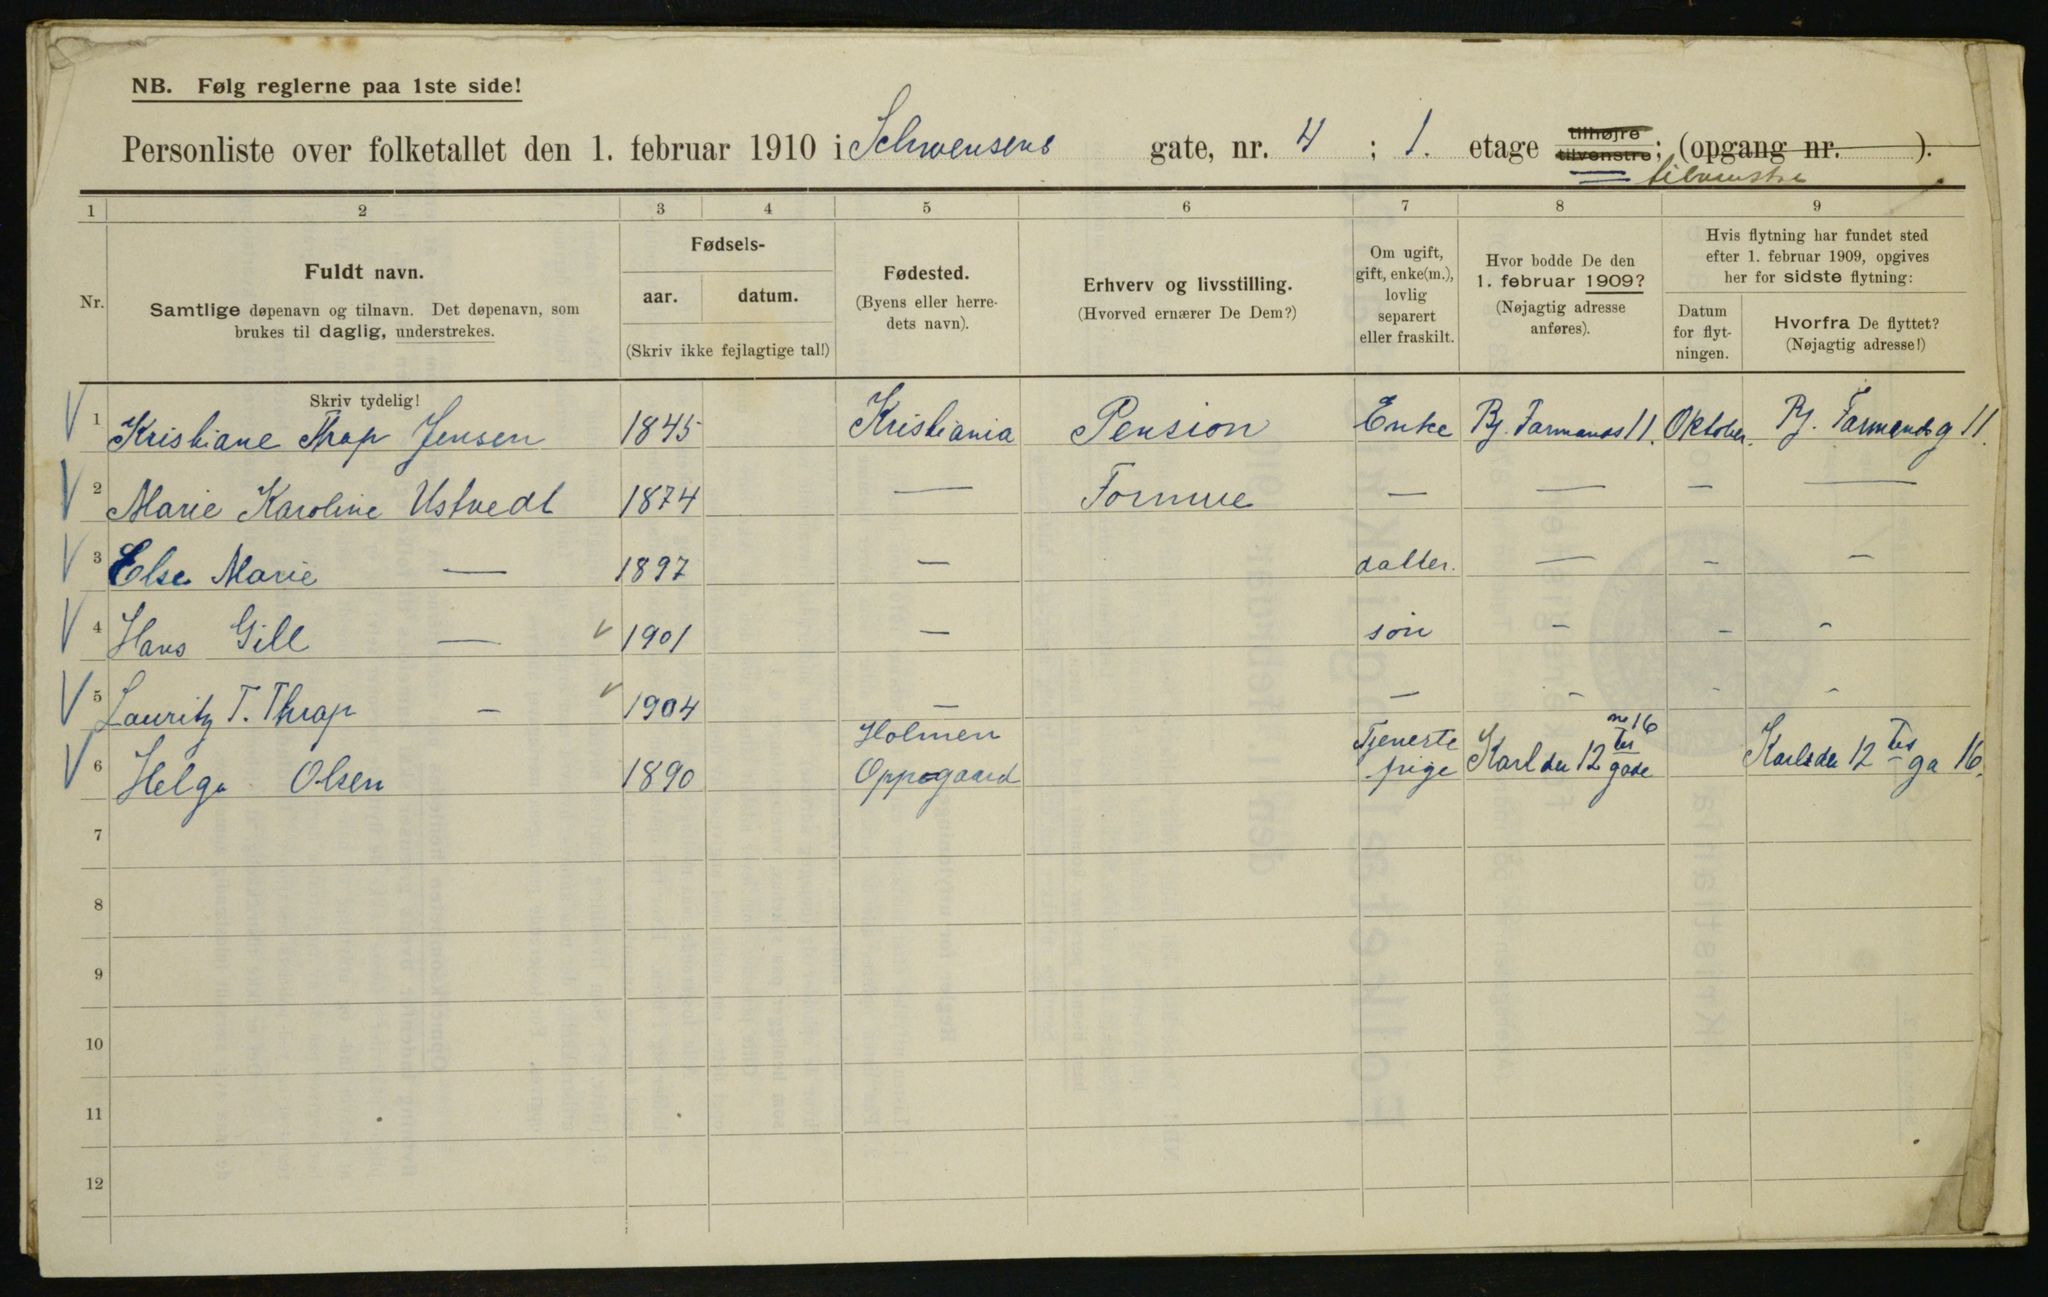 NB. Følg reglerne paa 1ste side!
Personliste over folketallet den 1. februar 1910 i Schwensens gate, nr. 4 ; 1. etage tilhøjre tilvenstre; (opgang nr. ).
tilvenstre
1 2 3 4 5 6 7 8 9
Nr.
Fuldt navn.
Samtlige døpenavn og tilnavn. Det døpenavn, som
brukes til daglig, understrekes.
Fødsels-
aar. datum.
(Skriv ikke fejlagtige tal!)
Fødested.
(Byens eller herre-
dets navn).
Erhverv og livsstilling.
(Hvorved ernærer De Dem?)
Om ugift,
gift, enke(m.),
lovlig
separert
eller fraskilt.
Hvor bodde De den
1. februar 1909?
(Nøjagtig adresse
anføres).
Hvis flytning har fundet sted
efter 1. februar 1909, opgives
her for sidste flytning:
Datum
for flyt-
ningen.
Hvorfra De flyttet?
(Nøjagtig adresse!)
Skriv tydelig!
1 Kristiane Thrap Jensen 1845 Kristiania Pension Enke Bj. Farmands 11. Oktober. Bj. Farmands g 11.
2 Marie Karoline Ustvedt 1874 — Formue — — — —
3 Else Marie — 1897 — datter. — — —
4 Hans Gill — 1901 — søn — — —
5 Lauritz T. Thrap — 1904 — — — — —
6 Helga Olsen 1890 Holmen Oppegaard Tjenerste pige Karl den 12 tes gade no 16 Karl den 12 tes ga 16.
7
8
9
10
11
12